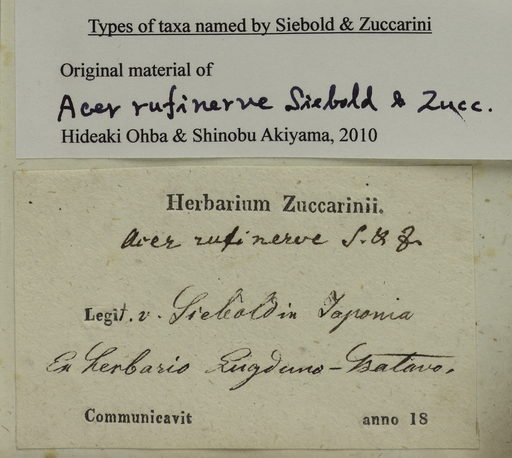 Types of taxa named by Siebold & Zuccarini
Original material of
Acer rufinerve Siebold & Zucc.
Hideaki Ohba & Shinobu Akiyama, 2010
Herbarium Zuccarinii.
Acer rufinerve S. & Z.
Legit. v. Siebold in Japonia
Ex herbario Lugduno-Batavo.
Communicavit anno 18